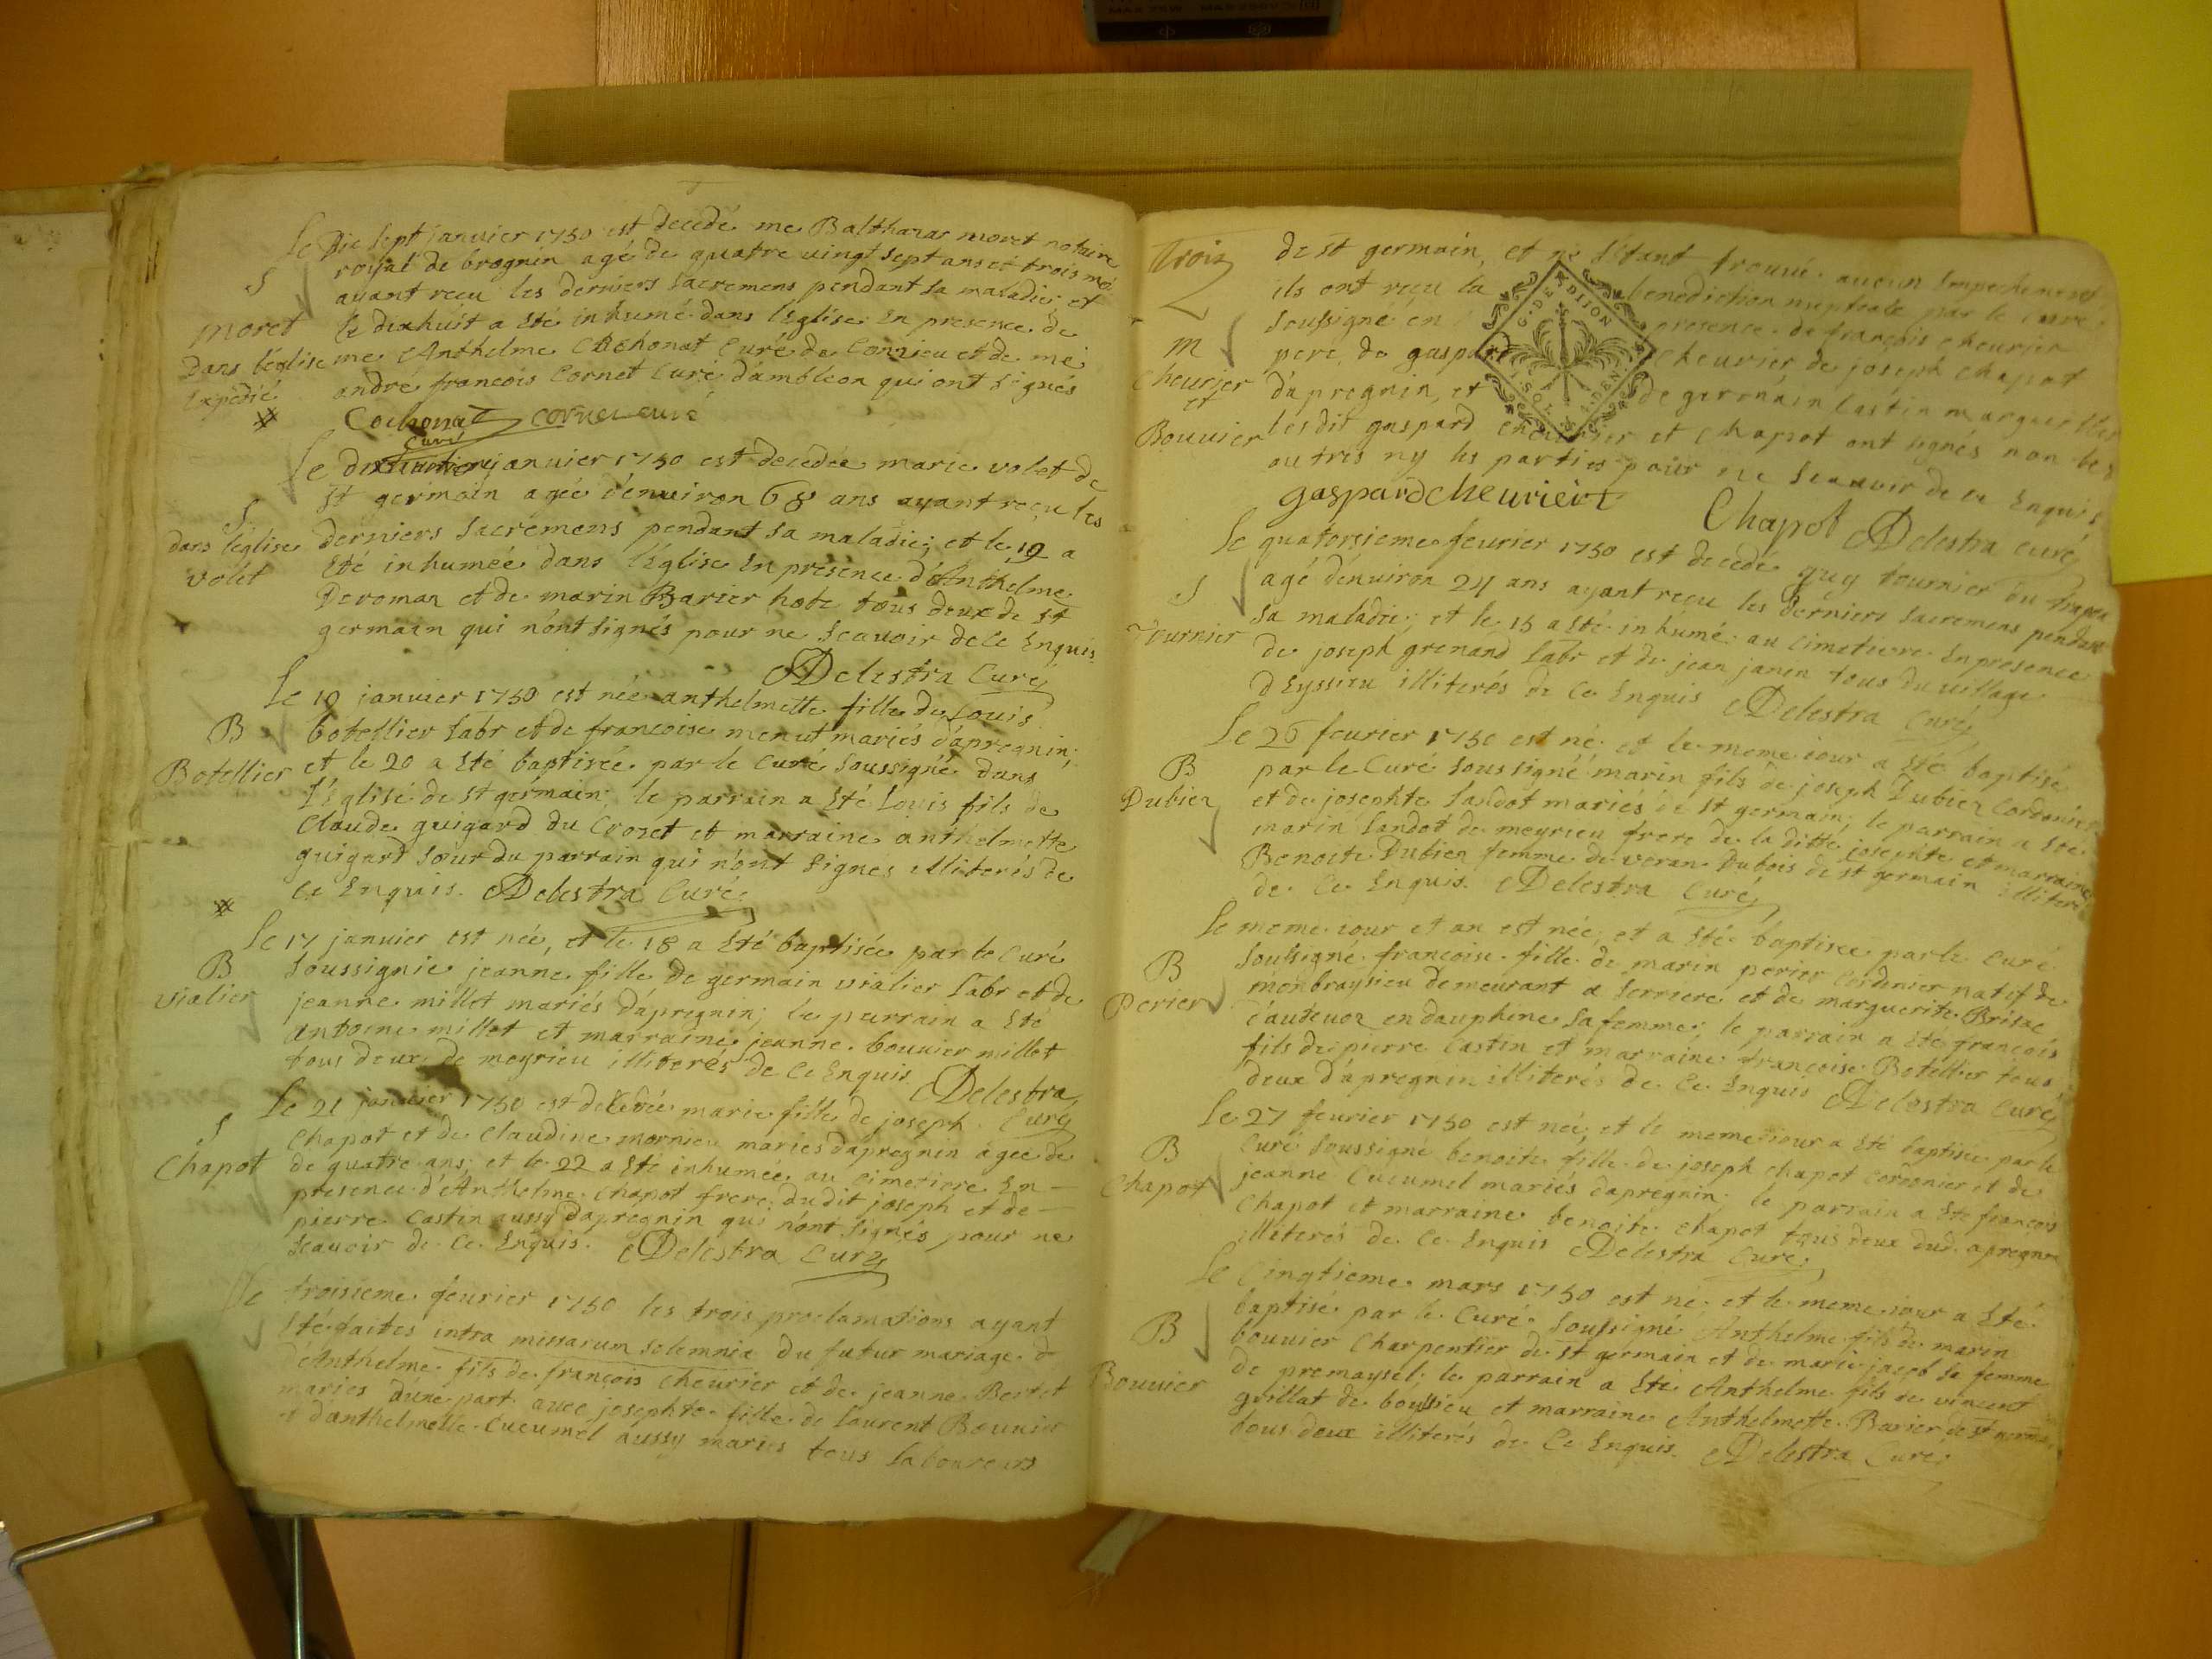 Le Dix sept janvier 1750 est decedé me Balthazar moret notaire
royal de brognin agé de quatre vingt sept ans et trois moi
ayant reçu les derniers sacremens pendant sa maladie; et
S
moret
le dixhuit a Eté inhumé dans l'Eglise En presence de
dans l'eglise
me Anthelme Cochonat Curé de Conzieu et de me
Expedié
andré francois Cornet Curé d'ambleon qui ont signés
Cochonat Cornet curé
curé
Le janvier 1750 est decedée marie volet de
St germain agée d'environ 68 ans ayant reçu les
S
dans l'eglise
volet
derniers sacremens pendant sa maladie; et le 19 a
Eté inhumée dans l'Eglise En presence d'Anthelme
Deroman et de marin Barier hote tous deux de St
germain qui n'ont signés pour ne scavoir de ce Enquis
Delestra Curé
Le 19 janvier 1750 est née anthelmette fille de Louis
B
Botellier
botellier labr et de francoise menut mariés d'apregnin;
et le 20 a Eté baptisée par le Curé soussigné dans
l'Eglise de st germain; le parrain a Eté Louis fils de
Claude guigard du Crozet et marraine anthelmette
guigard soeur du parrain qui n'ont signes illiterés de
ce Enquis. Delestra Curé
Le 17 janvier est née, et le 18 a Eté baptisée par le Curé
B
vialier
soussignie jeanne fille de germain vialier labr et de
jeanne millet mariés d'apregnin; le parrain a Eté
antoine millet et marraine jeanne bouvier millet
tous deux de meyrieu illiterés de ce Enquis Delestra
Curé
Le 21 janvier 1750 est decedée marie fille de joseph
S
Chapot
Chapot et de Claudine mornieu mariés d'apregnin agee de
de quatre ans; et le 22 a Eté inhumée au cimetiere En
presence d'Anthelme Chapot frere dudit joseph et de
pierre Castin aussy d'apregnin qui n'ont signés pour ne
scavoir de ce Enquis. Delestra Curé
Le troisieme fevrier 1750 les trois proclamations ayant
Eté faites intra missarum solemnia du futur mariage d
d'Anthelme fils de françois chevrier et de jeanne Bertet
mariés d'une part avec josephte fille de laurent Bouvier
et d'anthelmette Cucumel aussy mariés tous laboureurs
Trois
de st germain, et ne s'etant trouvé aucun Empechement
ils ont reçu la benediction nuptiale par le Curé
G. DE DIJON
SOL
DEN.
M
Chevrier
et
Bouvier
soussigné en presence de françois chevrier
pere, de gaspard Chevrier de joseph chapot
d'apregnin, et de germain Castin marguillier
lesdit gaspard chevrier et chapot ont signés non les
autres ny les parties pour ne scavoir de ce Enquis
gaspard chevrier Chapot Delestra curé
Le quatorsieme fevrier 1750 est decedé guy tournier du
S
Tournier
agé d'environ 24 ans ayant reçu les derniers sacremens pendant
sa maladie; et le 15 a Eté inhumé au cimetiere En presence
de joseph grenand labr et de jean janin tous du village
d'Eyssieu illiterés de ce Enquis Delestra Curé
Le 26 fevrier 1750 est né et le meme iour a Eté baptisé
B
Dubiez
par le Curé soussigné marin fils de joseph Dubiez Cordonier
et de josephte landot mariés de st germain; le parrain a Eté
marin landot de meyrieu frere de la ditte josephte et marraine
Benoite Dubiez femme de veran Dubois de st germain illiterés
de ce Enquis. Delestra Curé
Le meme iour et an est née; et a Eté baptisée par le Curé
B
Perier
soussigné francoise fille de marin perier Cordonier natif de
monbraysieu demeurant a serriere et de marguerite Brisac
d'autevoz en dauphine sa femme; le parrain a Eté françois
fils de pierre Castin et marraine françoise Botellier tous
deux d'apregnin illiterés de ce Enquis Delestra Curé
Le 27 fevrier 1750 est née; et le meme iour a Eté baptisée par le
B
Chapot
Curé soussigné benoite fille de joseph chapot cordonier et de
jeanne Cucumel mariés d'apregnin; le parrain a Eté françois
Chapot et marraine benoite chapot tous deux dud. apregnin
illiterés de ce Enquis Delestra Curé
Le Cinqtieme mars 1750 est né et le meme iour a Eté
B
Bouvier
baptisé par le Curé soussigné Anthelme fils de marin
bouvier Charpentier de st germain et de marie jacob sa femme
de premaysel; le parrain a Eté Anthelme fils de vincent
guillat de boyssieu et marraine Anthelmette Barier de st germain
tous deux illiterés de ce Enquis. Delestra Curé